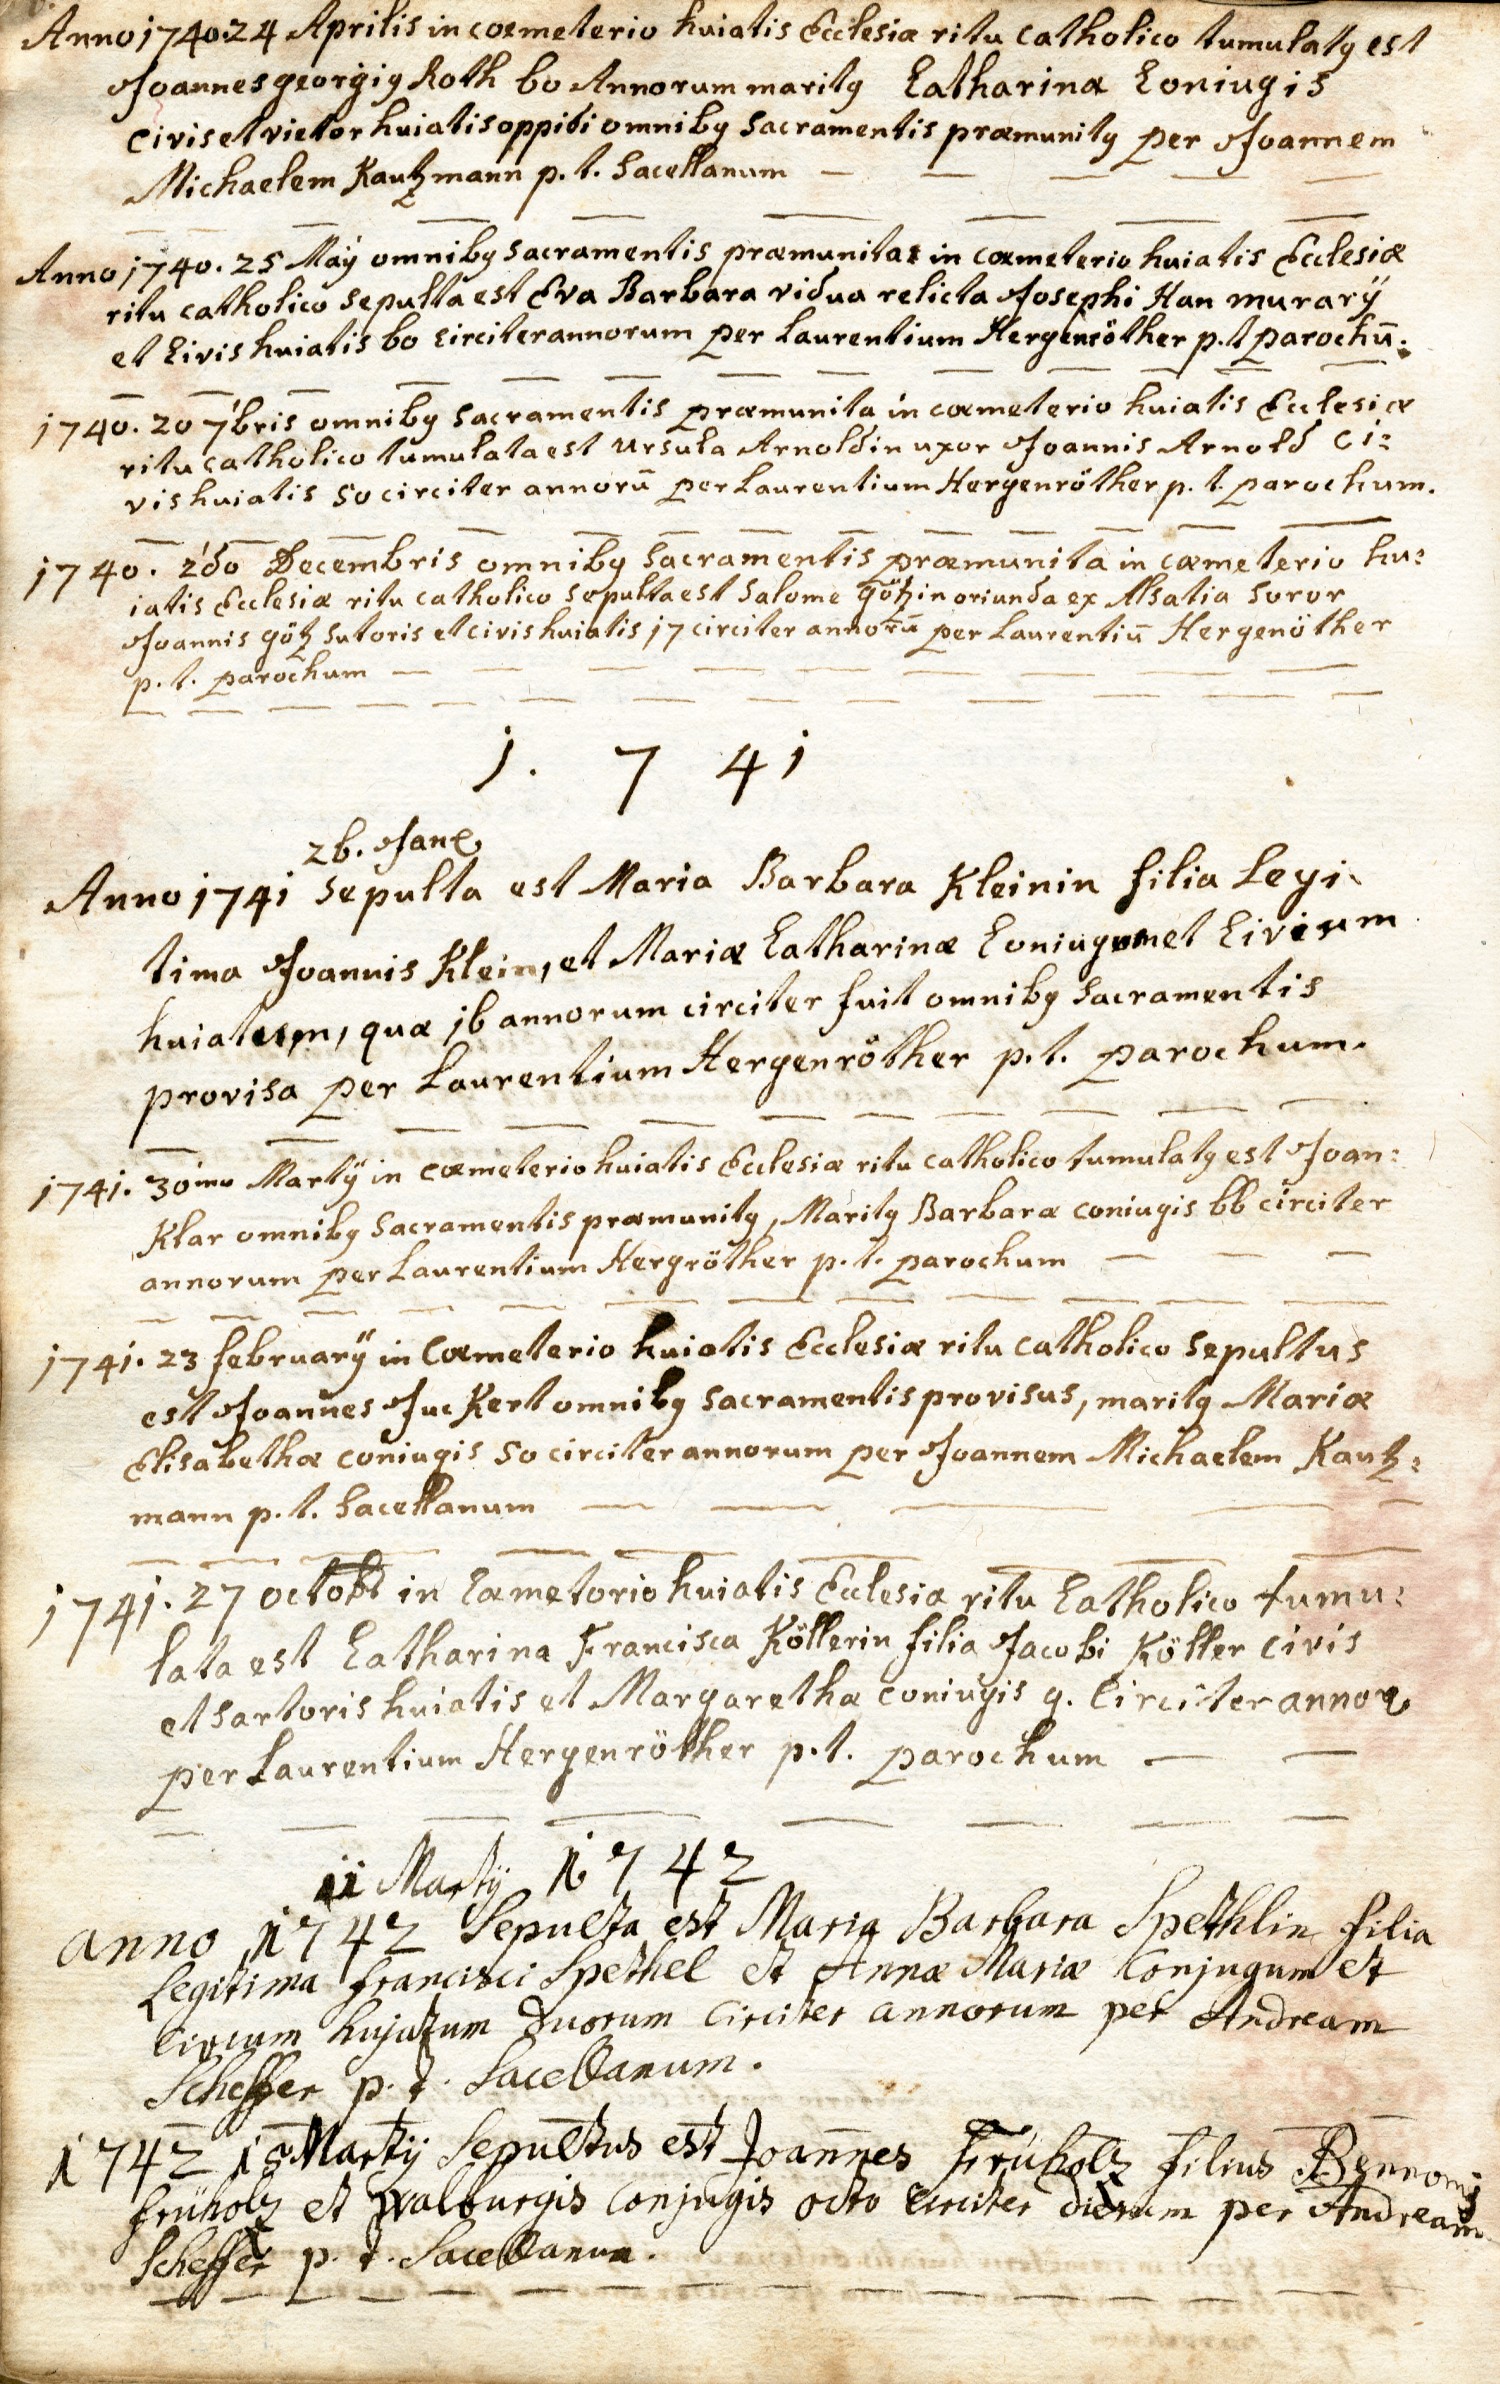 Anno 1740. 24 Aprilis in coemeterio huiatis Ecclesiæ ritu catholico tumulatꝰ est
Joannes georgiꝰ Roth 60 Annorum maritꝰ Catharinæ Coniugis
civis et vietor huiatis oppidi omnibꝰ sacramentis præmunitꝰ per Joannem
Michaelem Kautzmann p. t. Sacellanum
Anno 1740. 25 Maÿ omnibꝰ sacramentis præmunita in coemeterio huiatis Ecclesiæ
ritu catholico sepulta est Eva Barbara vidua relicta Josephi Han murarÿ
et Civis huiatis 60 circiter annorum per Laurentium Hergenröther p. t parochū.
1740. 20 7bris omnibꝰ sacramentis præmunita in coemeterio huiatis Ecclesiæ
ritu catholico tumulata est Ursula Arnoldin uxor Joannis Arnold ci:
vis huiatis 50 circiter annorū per Laurentium Hergenröther p. t. parochum.
1740. 2do Decembris omnibꝰ sacramentis præmunita in coemeterio hu:
iatis Ecclesiæ ritu catholico sepulta est Salome götzin oriunda ex Alsatia soror
Joannis götz sutoris et civis huiatis 17 circiter annorū per Laurentiū Hergenöther
p. t. parochum
1. 7 4 1
26. Jane
Anno 1741 sepulta est Maria Barbara Kleinin filia Legi-
tima Joannis Klein, et Mariæ Catharinæ Coniugum et Civium
huiatum, quæ 16 annorum circiter fuit omnibꝰ sacramentis
provisa per Laurentium Hergenröther p. t. parochum.
1741. 30mo Martÿ in coemeterio huiatis Ecclesiæ ritu catholico tumulatꝰ est Joan:
Klar omnibꝰ sacramentis præmunitꝰ, Maritꝰ Barbaræ coniugis 66 circiter
annorum per Laurentium Hergröther p. t. parochum
1741. 23 februarÿ in Coemeterio huiatis Ecclesiæ ritu catholico sepultus
est Joannes Juckert omnibꝰ sacramentis provisus, maritꝰ Mariæ
Elisabethæ coniugis 50 circiter annorum per Joannem Michaelem Kautz:
mann p. t. Sacellanum
1741. 27 octobr in Coemetorio huiatis Ecclesiæ ritu Catholico tumu:
lata est Catharina Francisca Köllerin filia Jacobi Köller civis
et sartoris huiatis et Margarethæ coniugis 9. Circiter annoꝝ
per Laurentium Hergenröther p. t. parochum
11 Martÿ 1742
anno 1742 Sepulta est Maria Barbara Spethlin filia
Legitima francisci Spethel et Annæ Mariæ Conjugum et
Civium hujatum Duorum Circiter annorum per Andream
Scheffer p. t. Sacellanum.
1742 18 Martÿ Sepultus est Joannes Früholz filius Bennonis
früholz et Walburgis Conjugis octo circiter dierum per Andream
Scheffer p. t. Sacellanum.